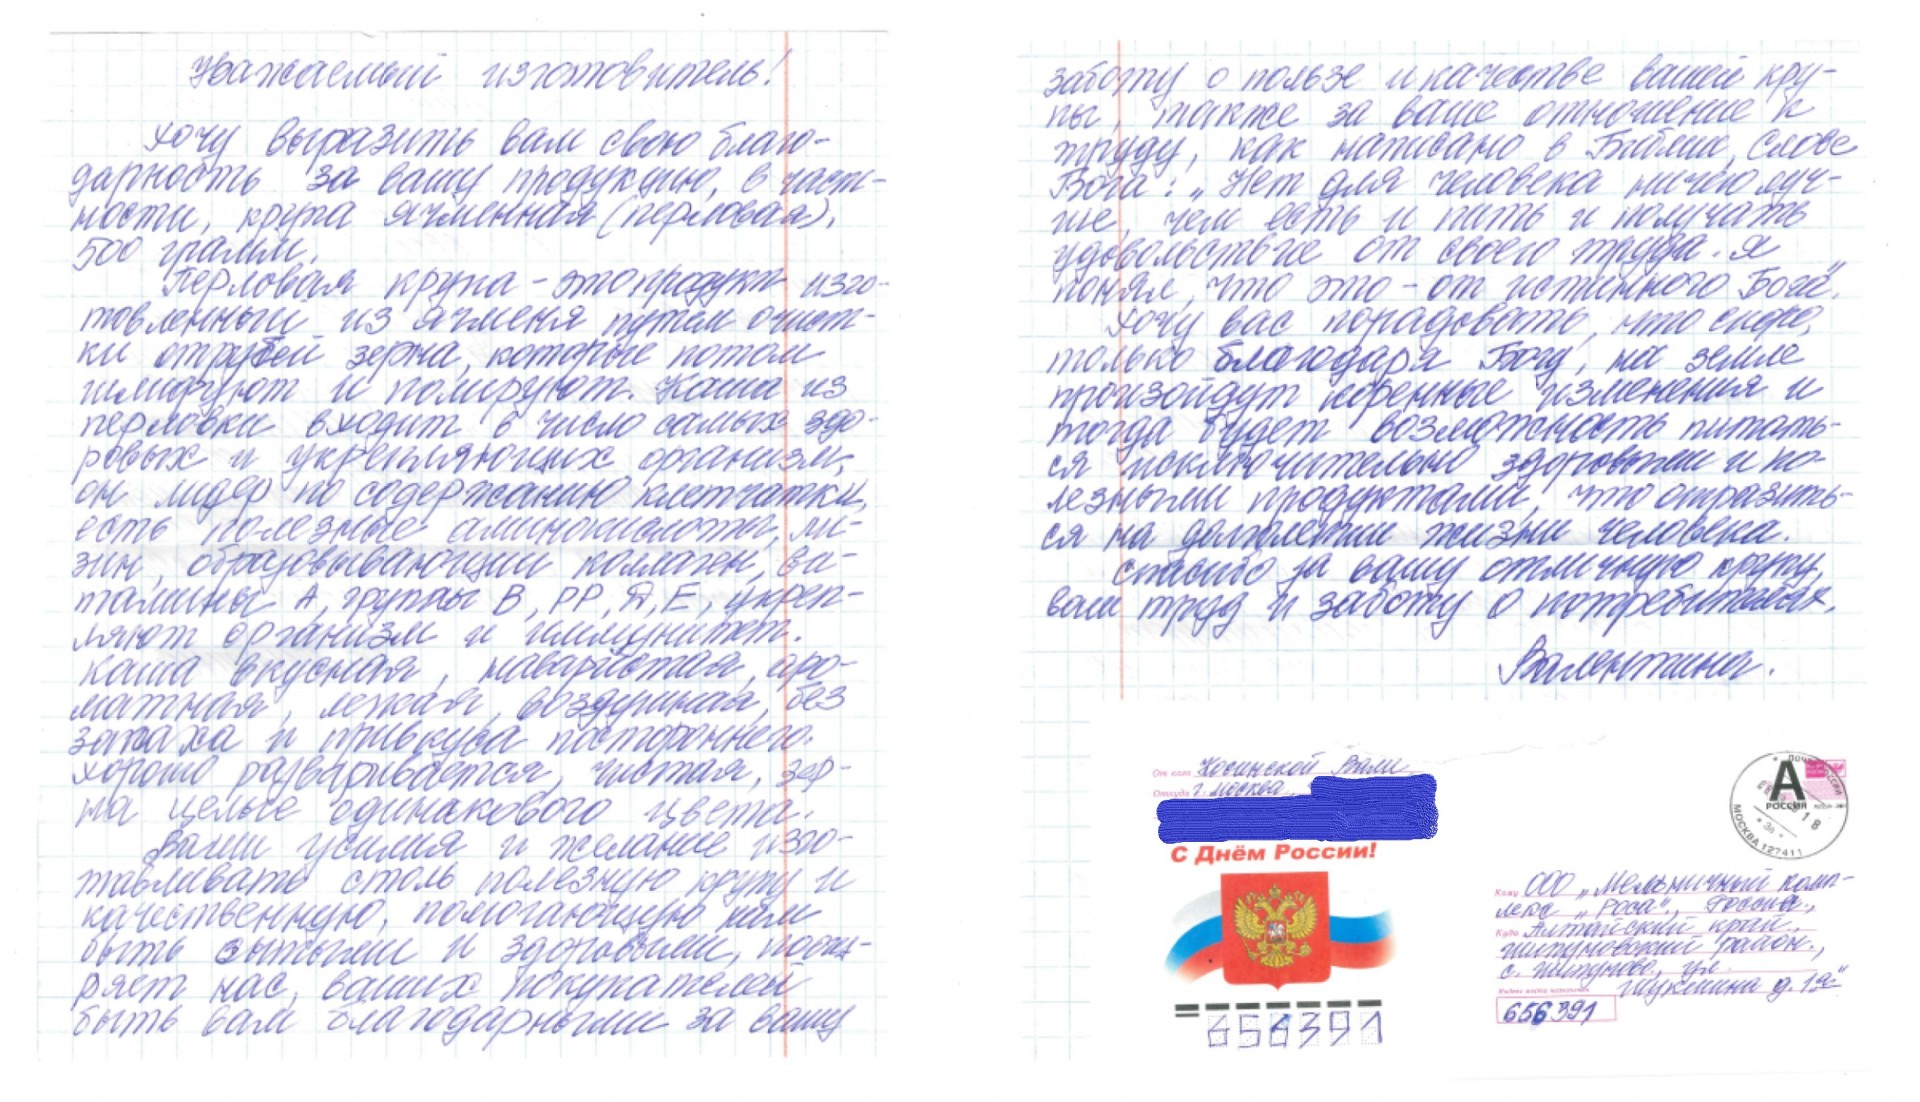 Уважаемый изготовитель!
Хочу выразить вам свою благо-
дарность за вашу продукцию, в част-
ности, крупа ячменная (перловая),
500 грамм.
Перловая крупа - это продукт изго-
товленный из ячменя путем очист-
ки отрубей зерна, которые потом
шлифуют и полируют. Каша из
перловки входит в число самых здо-
ровых и укрепляющих организм,
он лидер по содержанию клетчатки,
есть полезные аминокислоты, ли-
зин, образовывающий коллаген, ви-
тамины А, группы В, РР, Д, Е, укреп-
ляют организм и иммунитет.
Каша вкусная, наваристая, аро-
матная, легкая, воздушная, без
запаха и привкуса постороннего.
Хорошо разваривается, чистая, зер-
на целые одинакового цвета.
Ваши усилия и желание изго-
тавливать столь полезную крупу и
качественную, помогающую нам
быть сытыми и здоровыми, поощ-
ряет нас, ваших покупателей
быть вам благодарными за вашу
заботу о пользе и качестве вашей кру-
пы, также за ваше отношение к
труду, как написано в Библии, Слове
Бога: „Нет для человека ничего луч-
ше, чем есть и пить и получать
удовольствие от своего труда. Я
понял, что это - от истинного Бога".
Хочу вас порадовать, что скоро,
только благодаря Богу, на земле
произойдут коренные изменения и
тогда будет возможность питать-
ся исключительно здоровыми и по-
лезными продуктами, что отразить-
ся на долголетии жизни человека.
Спасибо за вашу отличную крупу,
ваш труд и заботу о потребителях.
Валентина.
От кого Косинской Вали
Откуда г. Москва,
С Днём России!
656391
Почта России
А
РОССИЯ
18
МОСКВА 127411
Кому ООО „Мельничный комп-
лекс „Роса"., Россия.,
Куда Алтайский край.,
Шипуновский район.,
с. Шипуново., ул.
Индекс места назначения Шукшина д. 1"я"
656391